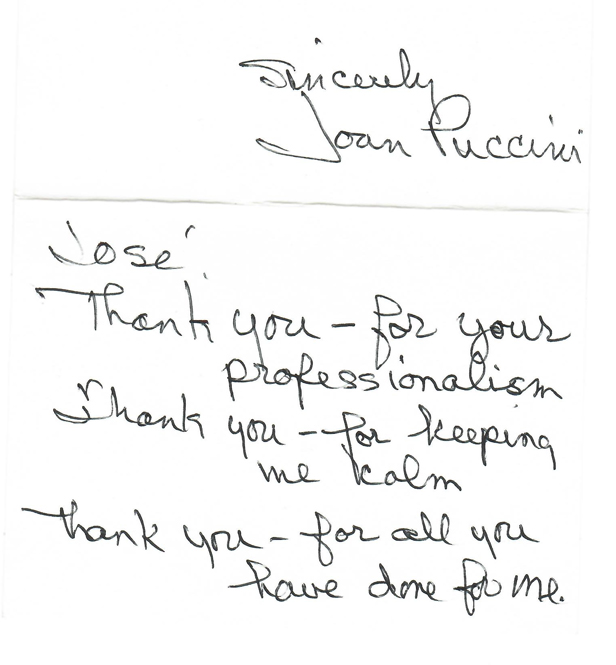 Sincerely
Joan Puccini
José,
Thank you – for your
professionalism
Thank you – for keeping
me kalm
Thank you – for all you
have done for me.